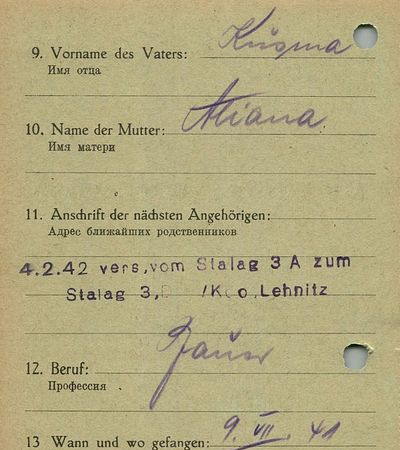 9. Vorname des Vaters: Kusma
Имя отца
10. Name der Mutter:
Имя матери
11. Anschrift der nächsten Angehörigen:
Адрес ближайших родственников
4.2.42 vers, vom Stalag 3 A zum
Stalag 3, /K o, Lehnitz
12. Beruf: Bauer
Профессия
13 Wann und wo gefangen: 9. VII. 41